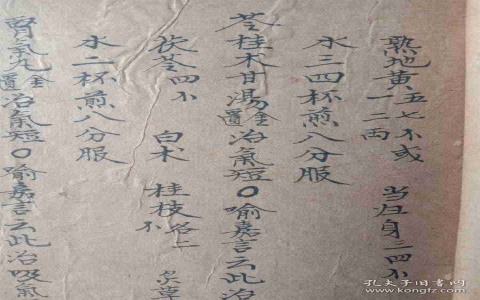 熟地黄五七不或一二两 当归身三四不
水三四杯煎八分服
苓桂术甘汤金匮治氣短〇喻嘉言云此治
茯苓四不 白术 桂枝各二不
水二杯煎八分服
腎氣丸金匮治氣短〇喻嘉言云此治吸氣
孔夫子旧書网
www.kongfz.com